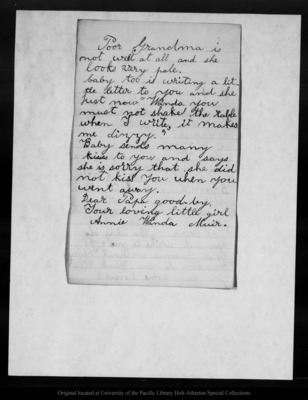 Poor Grandma is
not well at all and she
look very pale.
baby too is writing a lit
tle letter to you and she
just now "Wanda you
must not shake the table
when I write, it makes
me dizzy."
Baby sends many
kisses to you and says
she is sorry that she did
not kiss you when you
went away.
Dear Papa good by,
Your loving little girl
Annie Wanda Muir.
Original located at University of the Pacific Library Holt-Atherton Special Collections